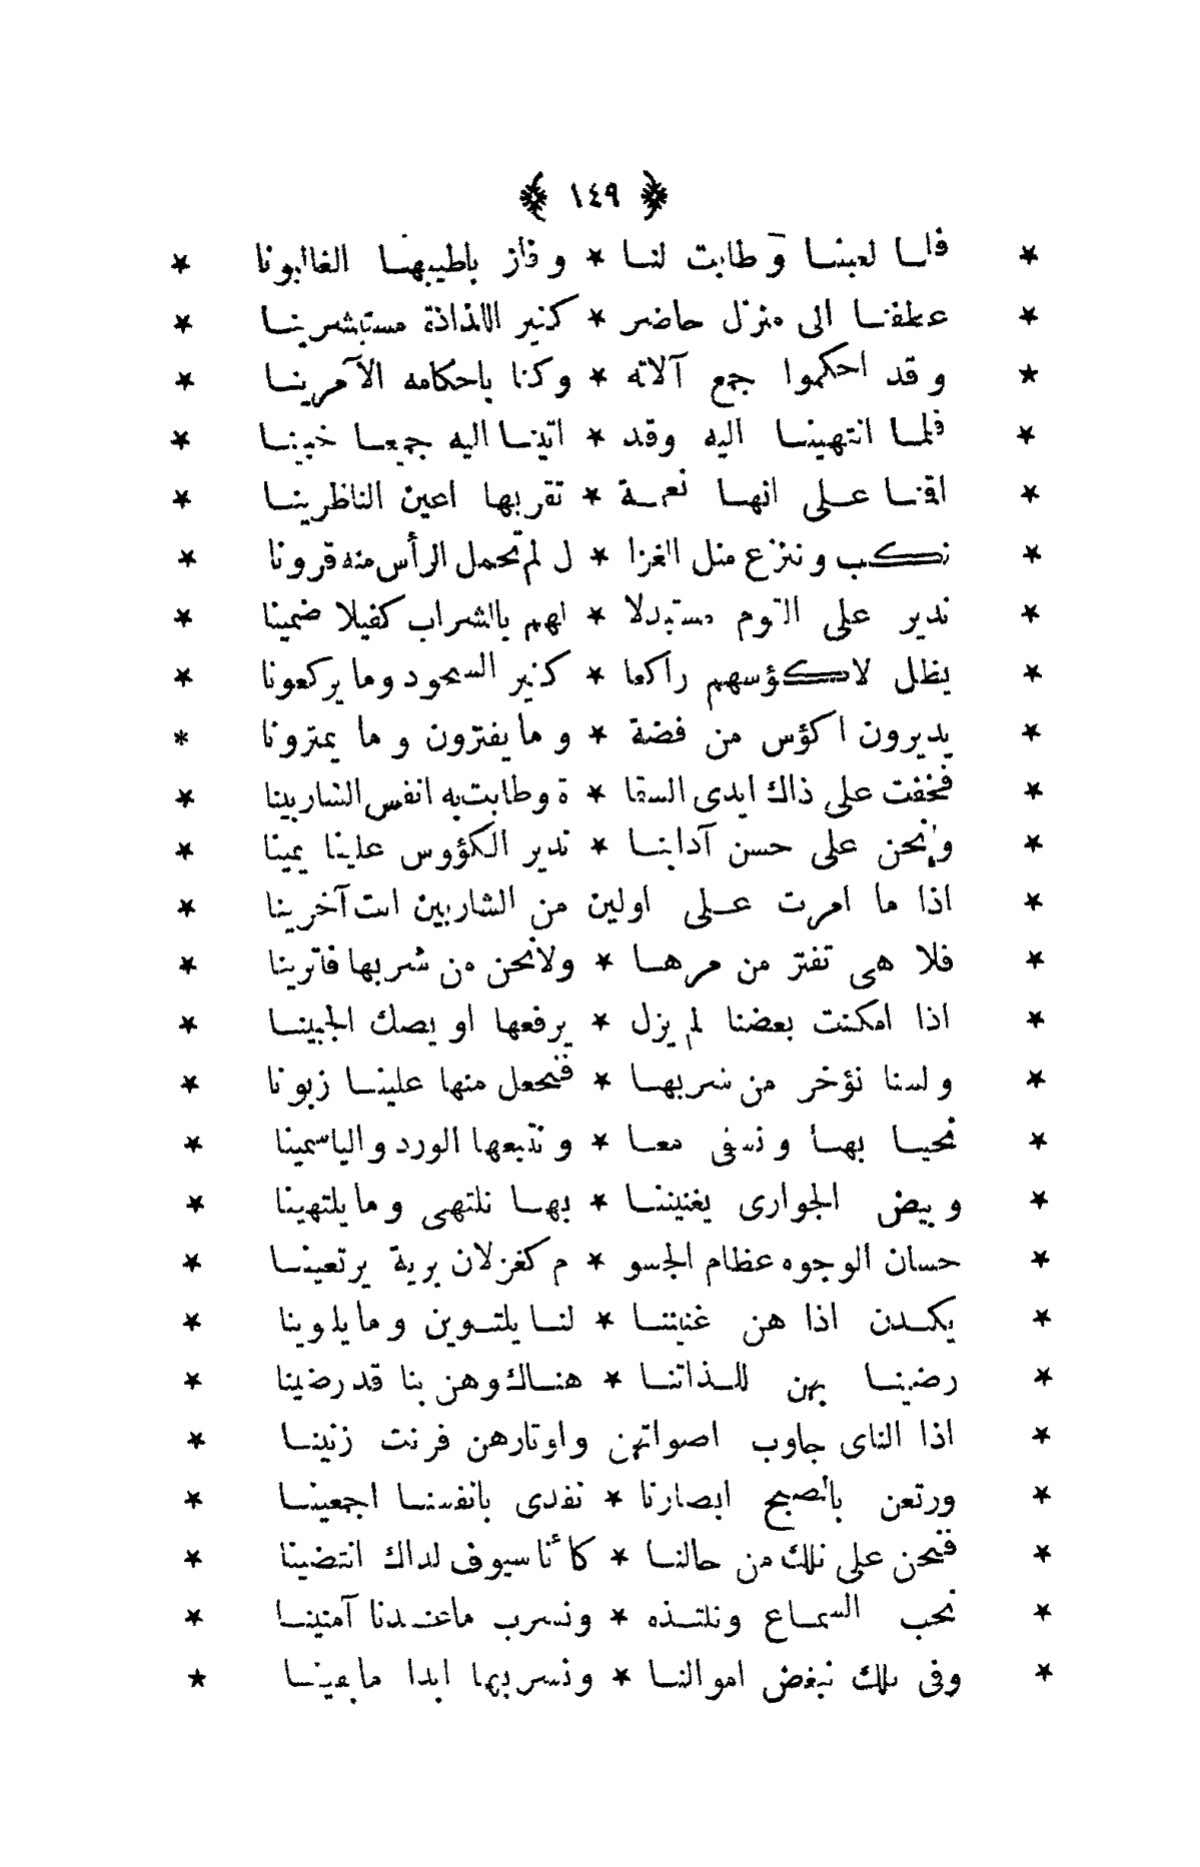 ﴿ ١٤٩ ﴾
* فلما لعبنا وطابت لنا * وفاز باطيبهنا الغالبونا *
* عطفنا الى منزل حاضر * كثير اللذاذة مستبشرينا *
* وقد احكموا جمع آلاته * وكنا باحكامه الآمرينا *
* فلما انتهينا اليه وقد * اتينا اليه جميعا خبينا *
* اقنا على انها نعمة * تقربها اعين الناظرينا *
* نكب وننزع مثل الغزا * ل لم تحمل الرأس منه قرونا *
* ندير على القوم مستبدلا * لهم بالشراب كفيلا ضمينا *
* يظل لاكؤسهم راكعا * كثير السجود وما يركعونا *
* يديرون اكؤس من فضة * وما يفترون وما يمترونا *
* فخفت على ذاك ايدى السقا * ة وطابت به انفس الشاربينا *
* ونحن على حسن آدابنا * ندير الكؤوس علينا يمينا *
* اذا ما امرت على اولين من الشاربين انت آخرينا *
* فلا هى تفتر من مرها * ولا نحن من شربها فاترينا *
* اذا امكنت بعضنا لم يزل * يرفعها او يصك الجبينا *
* ولسنا نؤخر من شربها * فنجعل منها علينا زبونا *
* نحيا بها ونسقى معا * ونتبعها الورد والياسمينا *
* وبيض الجوارى يغنيننا * بها نلتهى وما يلتهينا *
* حسان الوجوه عظام الجسو * م كغزلان برية يرتعينا *
* يكدن اذا هن غنيننا * لنا يلتوين وما يلوينا *
* رضينا بهن للذاتنا * هناك وهن بنا قد رضينا *
* اذا الناى جاوب اصواتهن واوتارهن فرنت زنينا *
* ورتعن بالصبح ابصارنا * نفدى بانفسنا اجمعينا *
* فنحن على تلك من حالنا * كأنا سيوف لداك انتضينا *
* نحب السماع ونلتذه * ونسرب ما عندنا آمنينا *
* وفى تلك نبغض اموالنا * ونسر بها ابدا ما بقينا *